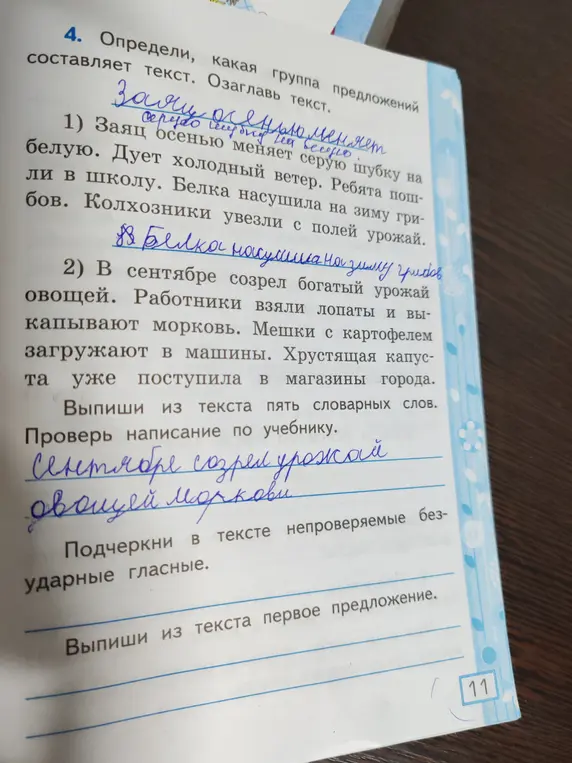 4. Определи, какая группа предложений
составляет текст. Озаглавь текст.
Заяц осенью меняет
серую шубку на белую.
1) Заяц осенью меняет серую шубку на
белую. Дует холодный ветер. Ребята пош-
ли в школу. Белка насушила на зиму гри-
бов. Колхозники увезли с полей урожай.
Белка насушила на зиму грибов
2) В сентябре созрел богатый урожай
овощей. Работники взяли лопаты и вы-
капывают морковь. Мешки с картофелем
загружают в машины. Хрустящая капус-
та уже поступила в магазины города.
Выпиши из текста пять словарных слов.
Проверь написание по учебнику.
Сентябре созрел урожай
овощей моркови
Подчеркни в тексте непроверяемые без-
ударные гласные.
Выпиши из текста первое предложение.
11